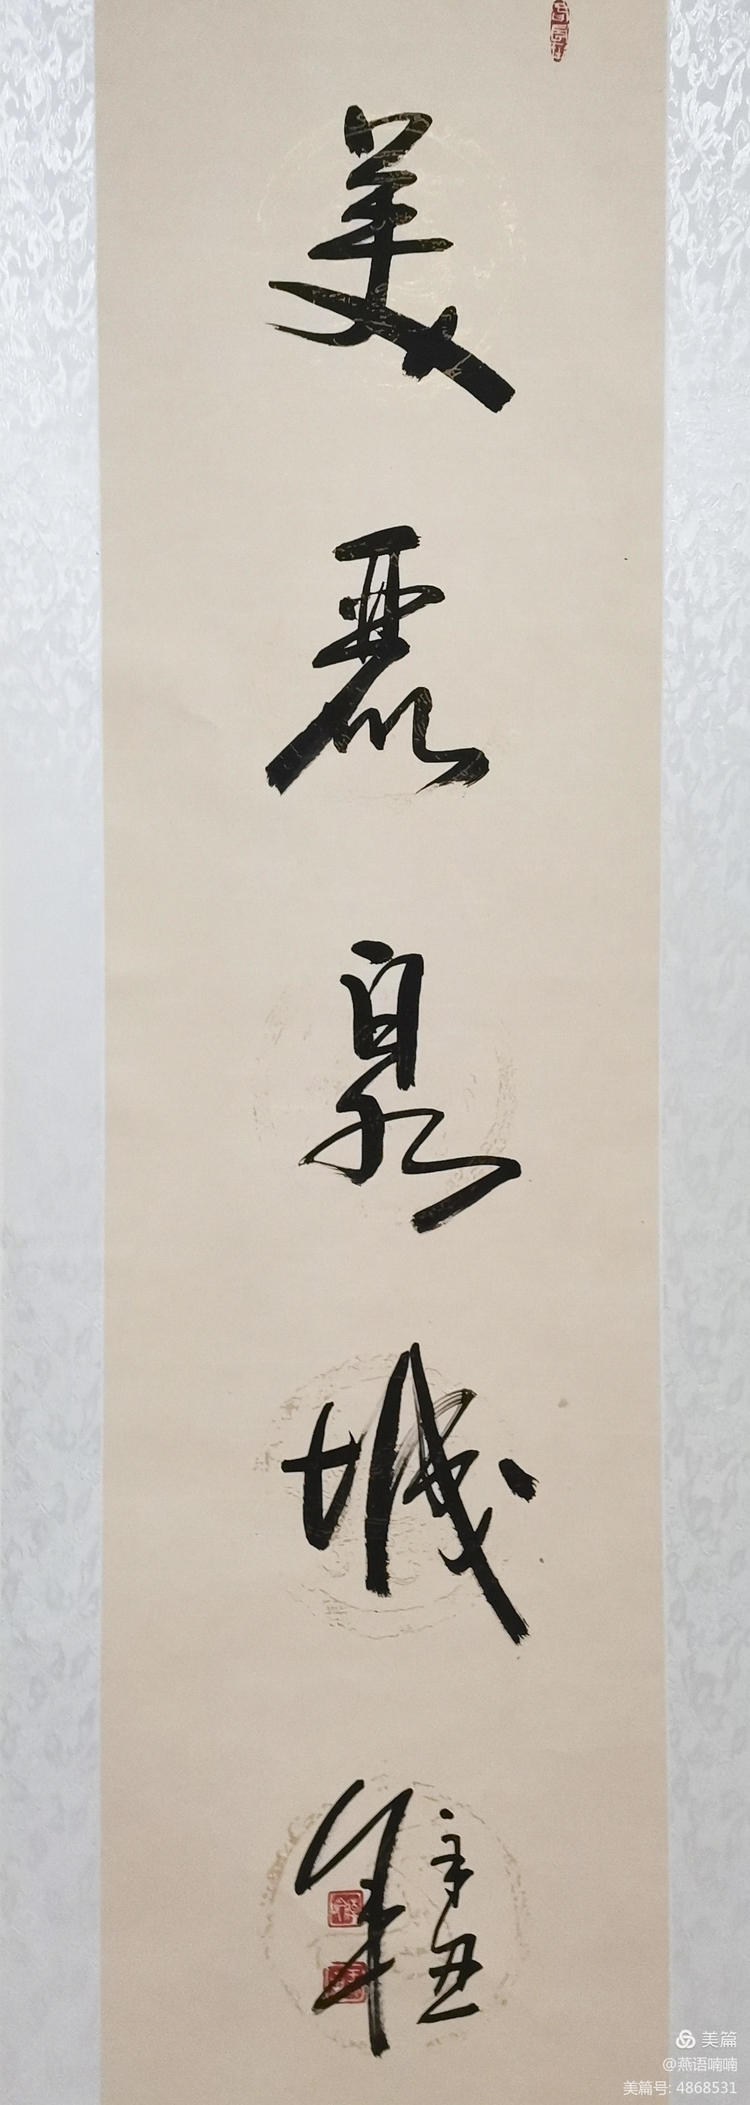 美麗泉城
辛丑
美篇
@燕语喃喃
美篇号: 4868531